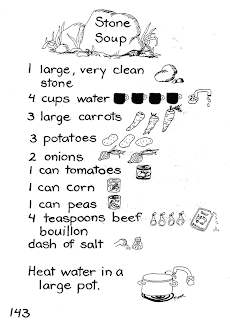 Stone
Soup
1 large, very clean
stone
4 cups water
3 large carrots
3 potatoes
2 onions
1 can tomatoes
1 can corn
1 can peas
4 teaspoons beef
bouillon
dash of salt
Heat water in a
large pot.
143